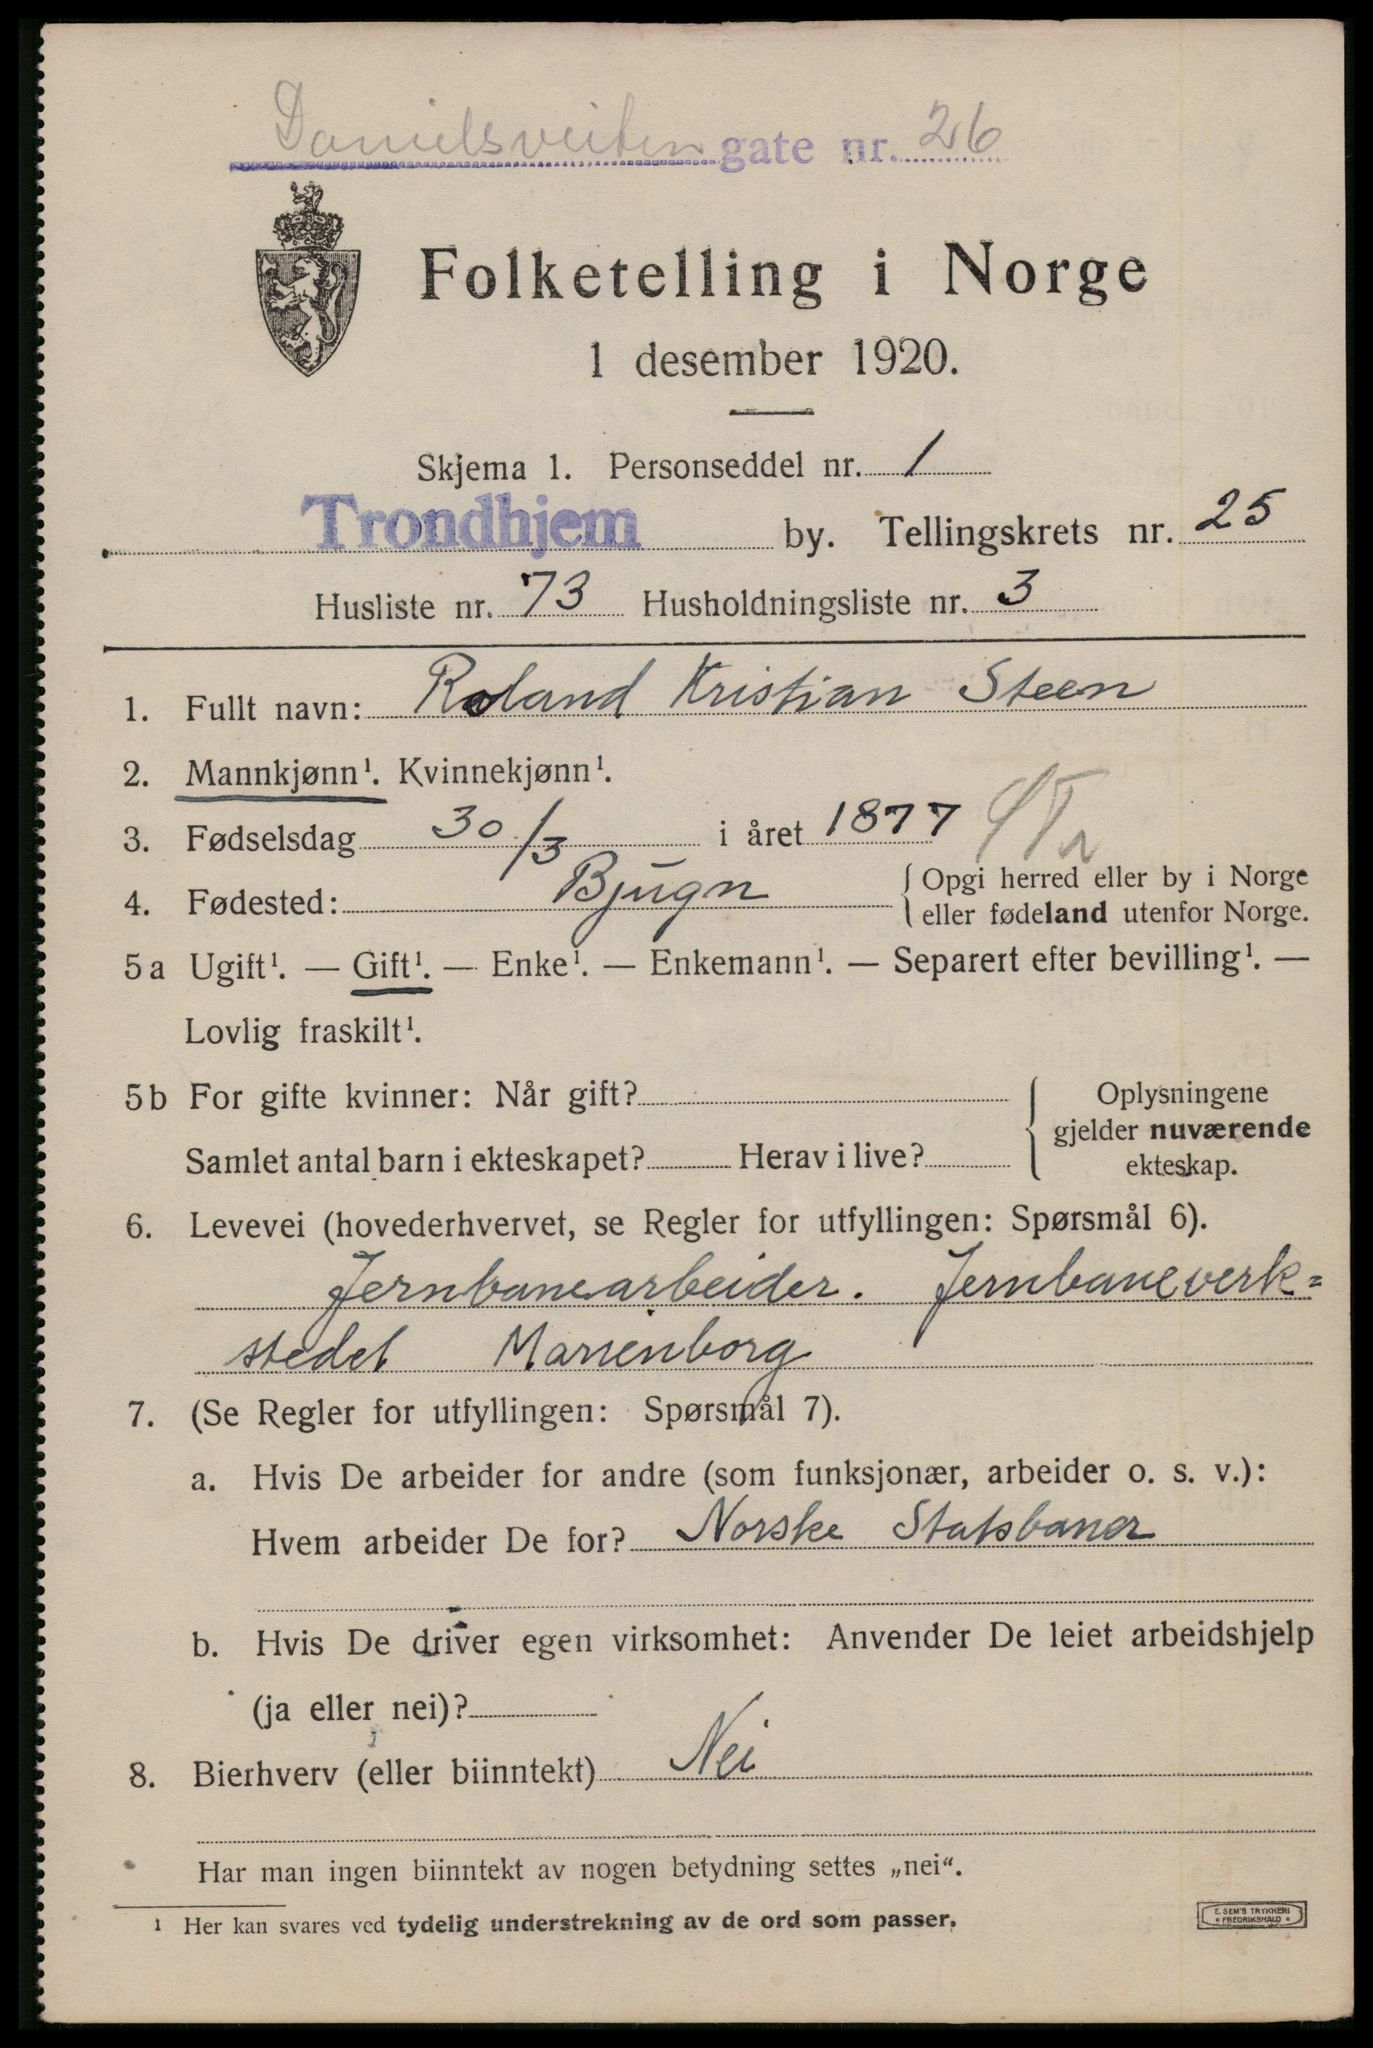 Danielsveiten gate nr. 26
Folketelling i Norge
1 desember 1920.
Skjema 1. Personseddel nr. 1
Trondhjem by. Tellingskrets nr. 25
Husliste nr. 73 Husholdningsliste nr. 3
1. Fullt navn: Roland Kristian Steen
2. Mannkjønn¹. Kvinnekjønn¹.
3. Fødselsdag 30/3 i året 1877
4. Fødested: Bjugn { Opgi herred eller by i Norge
eller fødeland utenfor Norge.
5a Ugift¹. — Gift¹. — Enke¹. — Enkemann¹. — Separert efter bevilling¹. —
Lovlig fraskilt¹.
5b For gifte kvinner: Når gift? { Oplysningene
gjelder nuværende
Samlet antal barn i ekteskapet? Herav i live?
ekteskap.
6. Levevei (hovederhvervet, se Regler for utfyllingen: Spørsmål 6).
Jernbanearbeider. Jernbaneverk=
stedet Marienborg
7. (Se Regler for utfyllingen: Spørsmål 7).
a. Hvis De arbeider for andre (som funksjonær, arbeider o. s. v.):
Hvem arbeider De for? Norske Statsbaner
b. Hvis De driver egen virksomhet: Anvender De leiet arbeidshjelp
(ja eller nei)?
8. Bierhverv (eller biinntekt) Nei
Har man ingen biinntekt av nogen betydning settes „nei“.
¹ Her kan svares ved tydelig understrekning av de ord som passer.
E. SEM'S TRYKKERI
* FREDRIKSHALD *